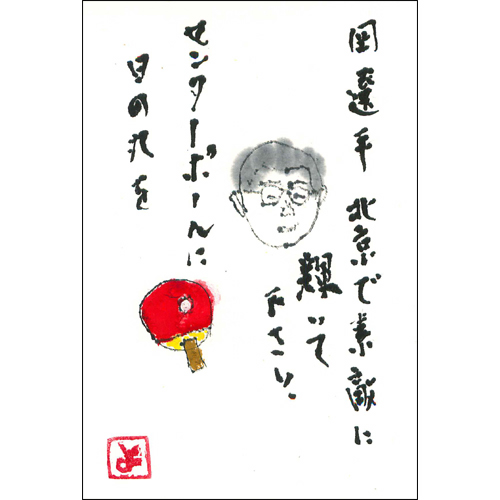 岡選手 北京で素敵に
輝いて
下さい。
センターポールに
日の丸を